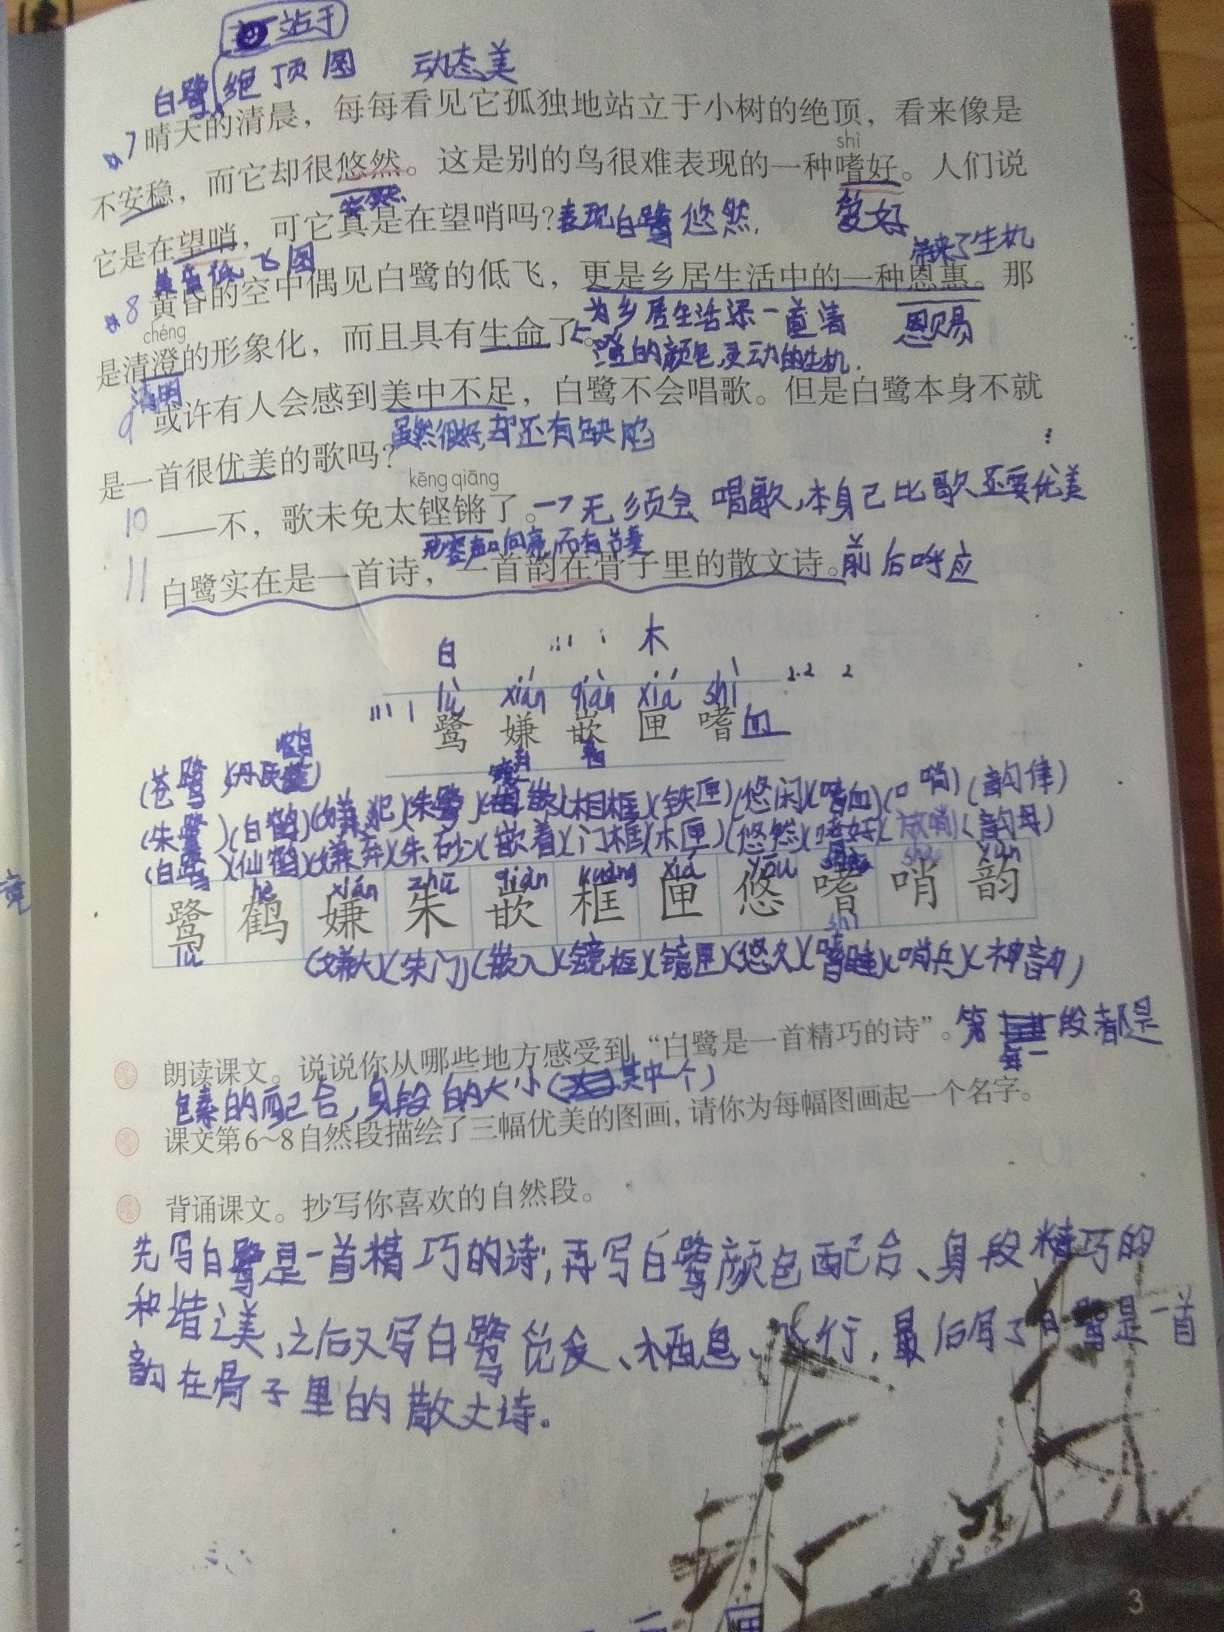 站于
白鹭 绝顶图 动态美
7 晴天的清晨，每每看见它孤独地站立于小树的绝顶，看来像是
shì
不安稳，而它却很悠然。这是别的鸟很难表现的一种嗜好。人们说
安然 爱好
它是在望哨，可它真是在望哨吗？表现白鹭悠然.
低飞图 带来了生机
8 黄昏的空中偶见白鹭的低飞，更是乡居生活中的一种恩惠。那
chéng
为乡居生活添一道清 恩赐
是清澄的形象化，而且具有生命了。
澄的颜色,灵动的生机.
清明
9 或许有人会感到美中不足，白鹭不会唱歌。但是白鹭本身不就
虽然很好,却还有缺陷
是一首很优美的歌吗？
kēng qiāng
10 ——不，歌未免太铿锵了。→无须会唱歌,本身己比歌还要优美
形容声口向亮,而有节奏
11 白鹭实在是一首诗，一首韵在骨子里的散文诗。前后呼应
白 木
lù xián qiàn xiá shì
鹭 嫌 嵌 匣 嗜血
(苍鹭)(丹顶鹤)
(朱鹭)(白鹤)(嫌犯)(朱鹭)(相框)(铁匣)(悠闲)(嗜血)(口哨)(韵律)
(白鹭)(仙鹤)(嫌弃)(朱砂)(嵌着)(门框)(木匣)(悠然)(嗜好)(放哨)(韵母)
hè xián zhū qiàn kuàng xiá yōu shào yùn
鹭 鹤 嫌 朱 嵌 框 匣 悠 嗜 哨 韵
lù shì
(嫌大)(朱门)(嵌入)(镜框)(镜匣)(悠久)(嗜睡)(哨兵)(神韵)
朗读课文。说说你从哪些地方感受到“白鹭是一首精巧的诗”。第每一段都是
色素的配合，身段的大小(其中一个)
课文第6~8自然段描绘了三幅优美的图画，请你为每幅图画起一个名字。
背诵课文。抄写你喜欢的自然段。
先写白鹭是一首精巧的诗；再写白鹭颜色配合、身段精巧的
和谐之美,之后又写白鹭觅食、栖息、飞行，最后写了白鹭是一首
韵在骨子里的散文诗。
3